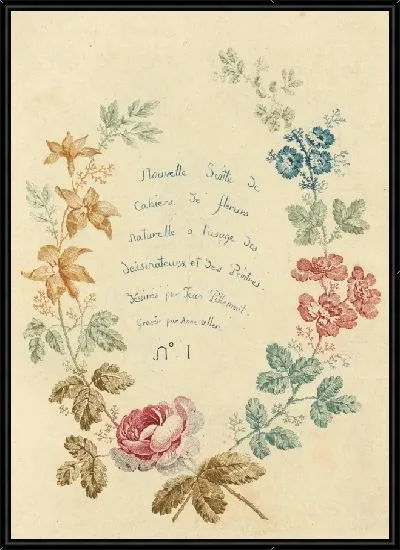 Nouvelle Suite De
Cahiers De fleurs
naturelle a l'usage des
Dessinateurs et Des Peintres.
Dessinés par Jean Pillement.
Gravés par Anne Allen
N° 1